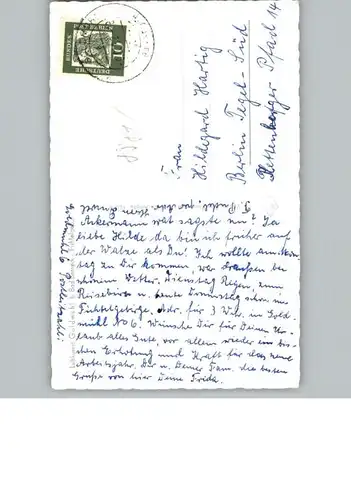 Frau
Hildegard Hartig
Berlin Tegel-Süd
Pfad 14
DEUTSCHE
BUNDESPOST
10
Ackermann wat sagste nu? Ja
liebe Hilde da bin ich früher auf
der Walze als Du! Ich wollte am
tag zu Dir kommen, wo draußen bei
schönem Wetter, Dienstag Regen, zum
Reisebüro u. heute Donnerstag schon im
Fichtelgebirge. Adr. für 3 Wch. in Gold-
mühl No 6. Wünsche Dir für Deinen Ur-
laub alles Gute, vor allem wieder ein bis-
chen Erholung und Kraft für das neue
Arbeitsjahr. Dir u. Deiner Fam. die besten
Grüße von hier Deine Frida.